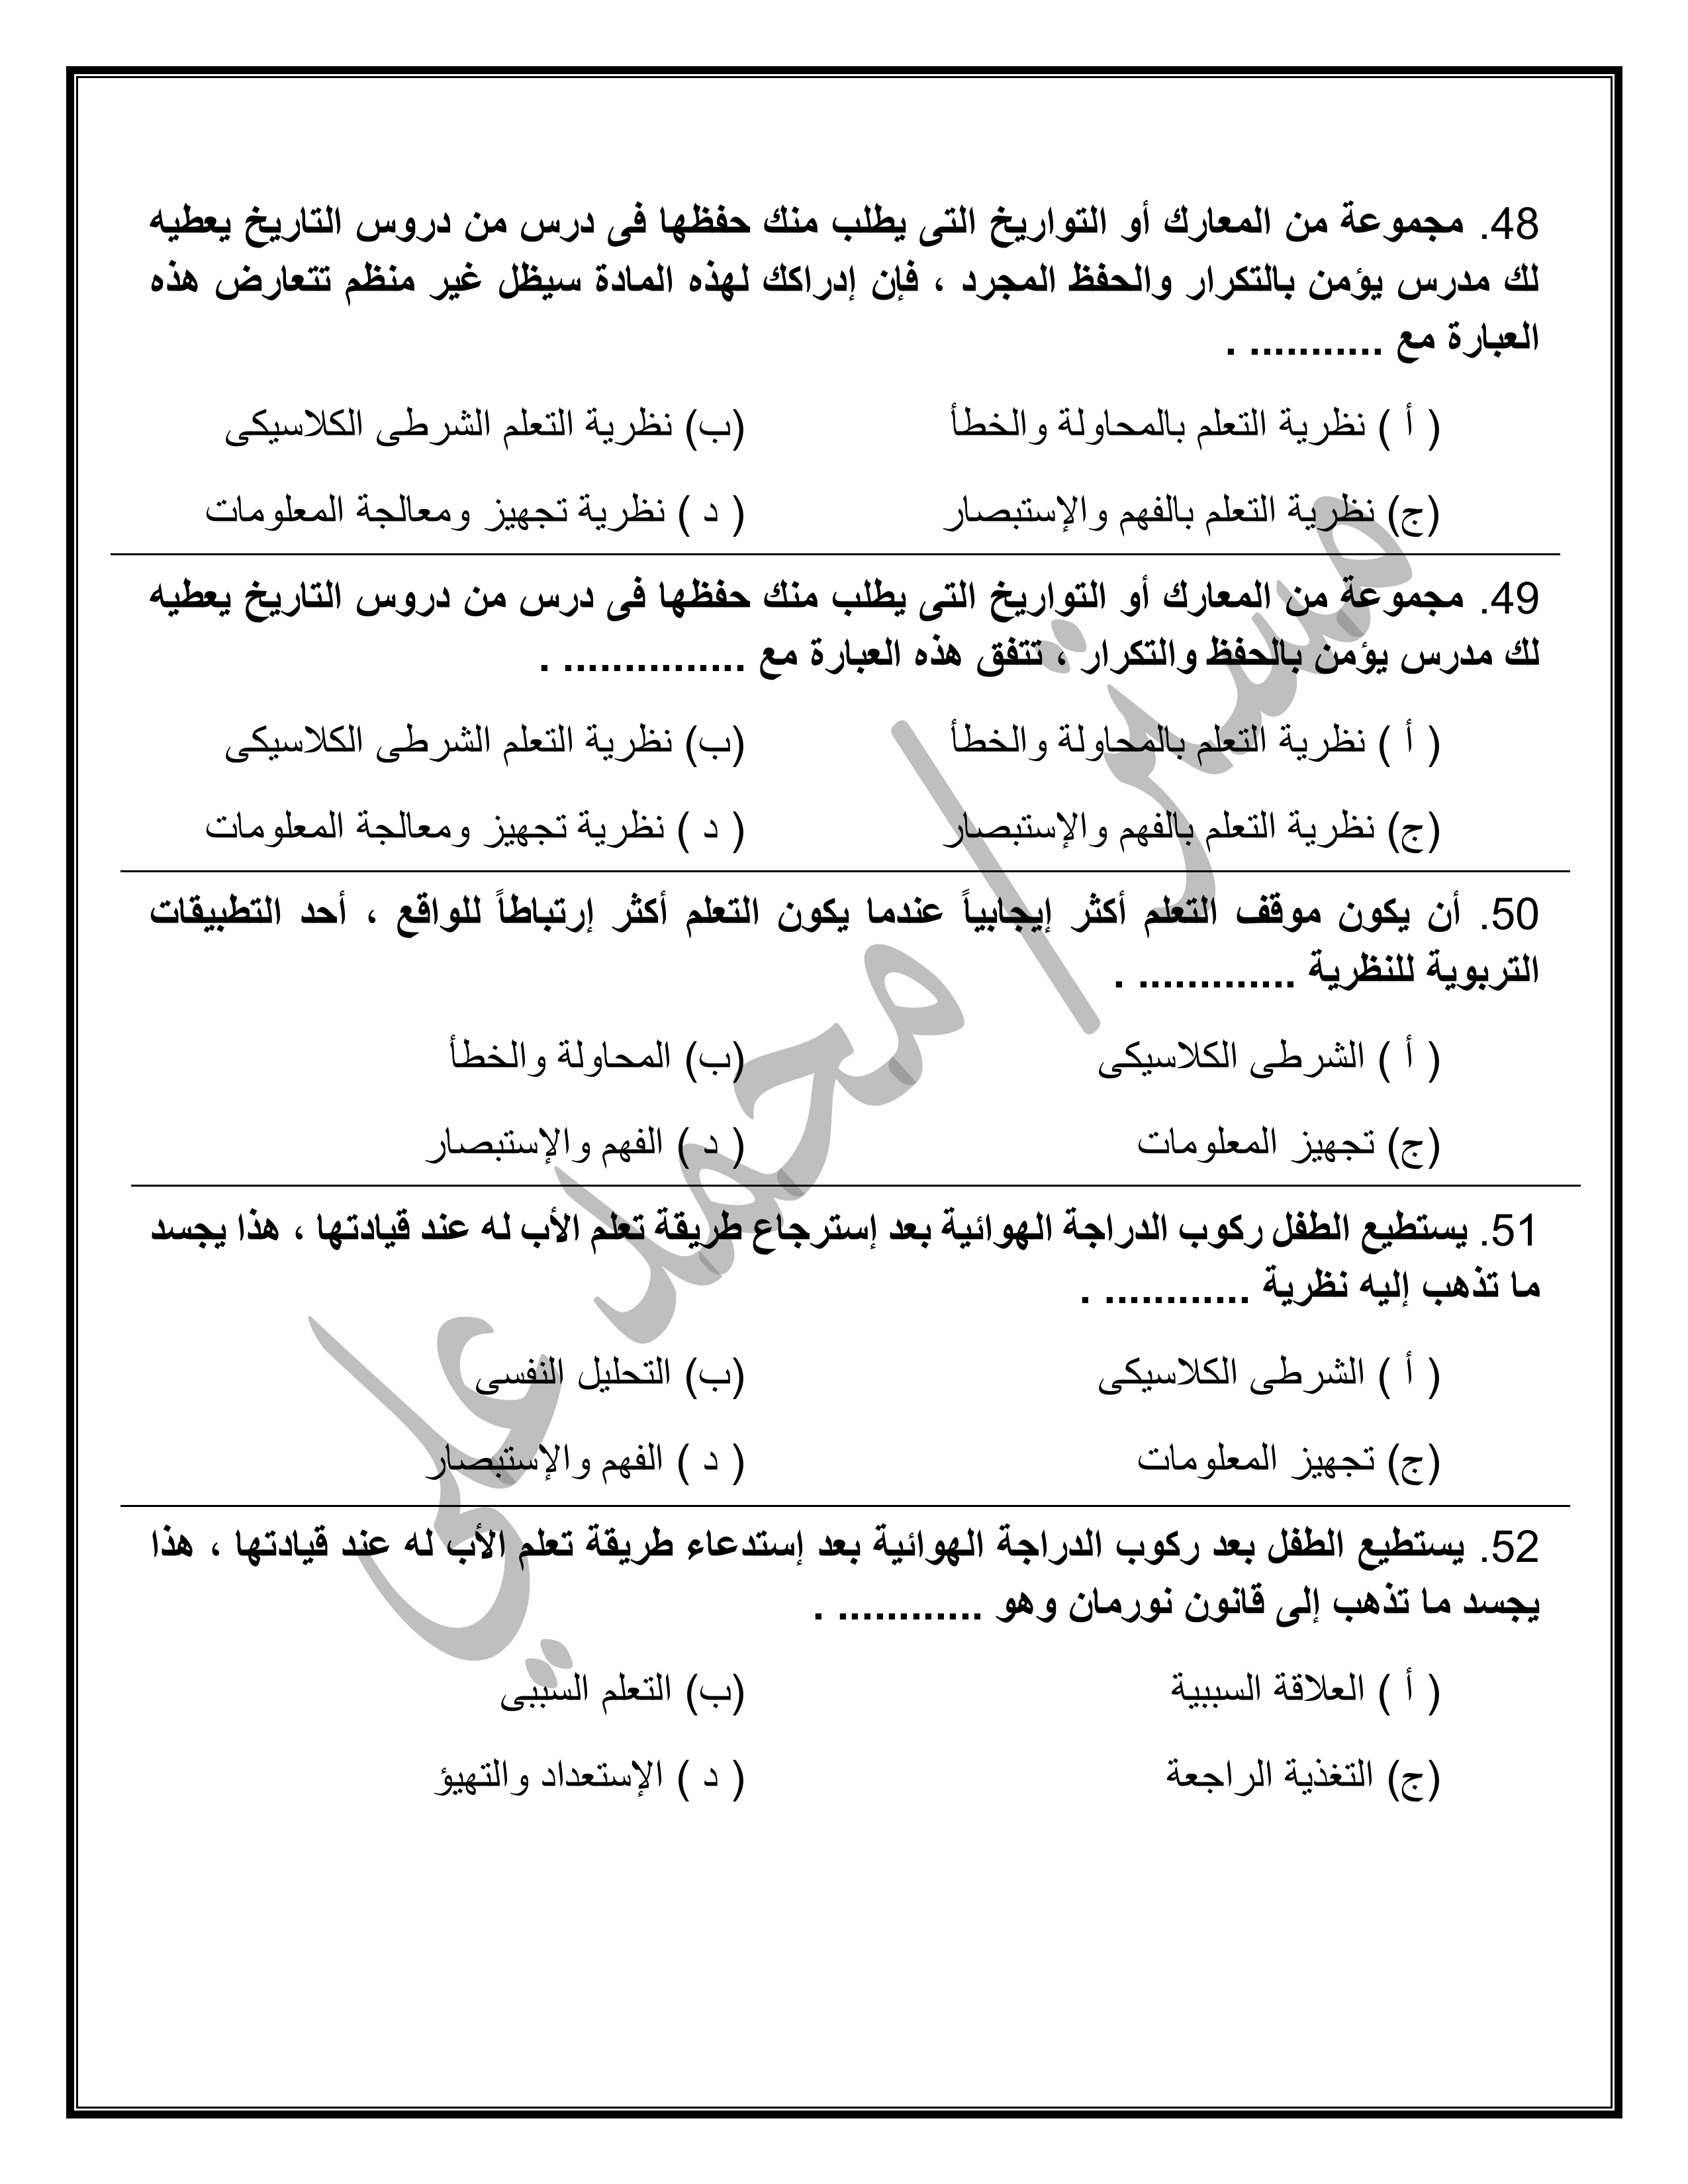 48. مجموعة من المعارك أو التواريخ التى يطلب منك حفظها فى درس من دروس التاريخ يعطيه
لك مدرس يؤمن بالتكرار والحفظ المجرد ، فإن إدراكك لهذه المادة سيظل غير منظم تتعارض هذه
العبارة مع ........... .
( أ ) نظرية التعلم بالمحاولة والخطأ (ب) نظرية التعلم الشرطى الكلاسيكى
(ج) نظرية التعلم بالفهم والإستبصار ( د ) نظرية تجهيز ومعالجة المعلومات
49. مجموعة من المعارك أو التواريخ التى يطلب منك حفظها فى درس من دروس التاريخ يعطيه
لك مدرس يؤمن بالحفظ والتكرار ، تتفق هذه العبارة مع ............... .
( أ ) نظرية التعلم بالمحاولة والخطأ (ب) نظرية التعلم الشرطى الكلاسيكى
(ج) نظرية التعلم بالفهم والإستبصار ( د ) نظرية تجهيز ومعالجة المعلومات
50. أن يكون موقف التعلم أكثر إيجابياً عندما يكون التعلم أكثر إرتباطاً للواقع ، أحد التطبيقات
التربوية للنظرية ............. .
( أ ) الشرطى الكلاسيكى (ب) المحاولة والخطأ
(ج) تجهيز المعلومات ( د ) الفهم والإستبصار
51. يستطيع الطفل ركوب الدراجة الهوائية بعد إسترجاع طريقة تعلم الأب له عند قيادتها ، هذا يجسد
ما تذهب إليه نظرية ............ .
( أ ) الشرطى الكلاسيكى (ب) التحليل النفسى
(ج) تجهيز المعلومات ( د ) الفهم والإستبصار
52. يستطيع الطفل بعد ركوب الدراجة الهوائية بعد إستدعاء طريقة تعلم الأب له عند قيادتها ، هذا
يجسد ما تذهب إلى قانون نورمان وهو ............ .
( أ ) العلاقة السببية (ب) التعلم السببى
(ج) التغذية الراجعة ( د ) الإستعداد والتهيؤ
مستر/محمد علي